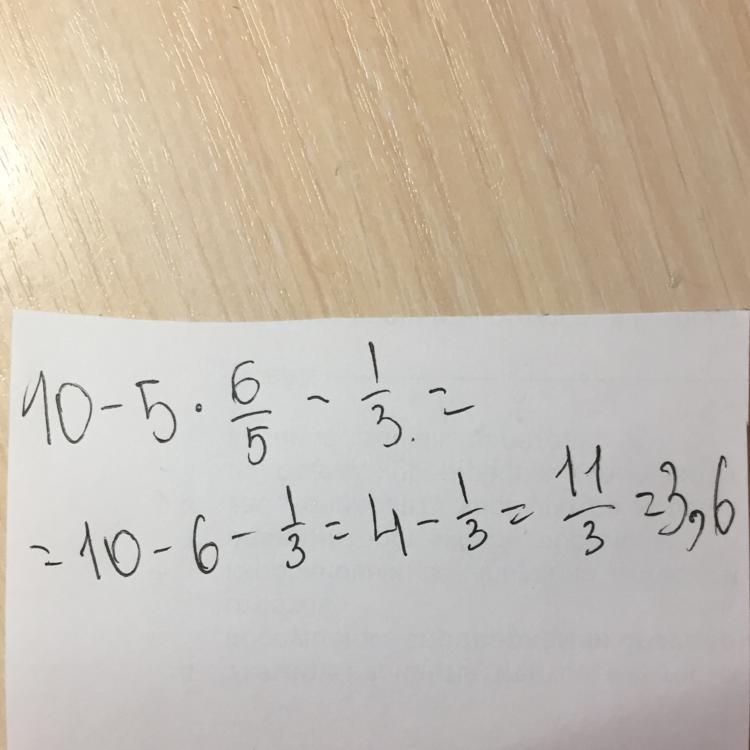 10 - 5 · 6/5 - 1/3 =
= 10 - 6 - 1/3 = 4 - 1/3 = 11/3 = 3,6